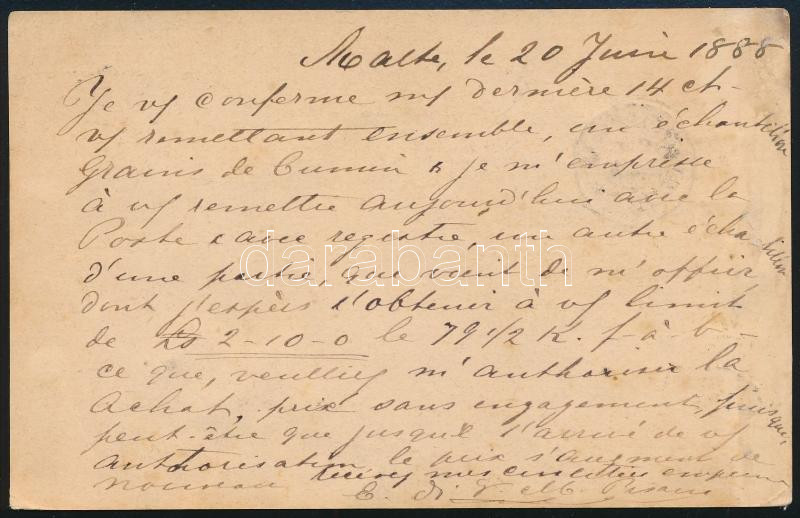 Malte, le 20 Juin 1888
Je vs conferme ms dernière 14 ct-
vs remettant ensemble, un échantillon
Grains de Cumin & je m'empresse
à vs remettre aujourd'hui avec la
Poste & avec registré, un autre échantillon
d'une partie, que vient de m'offrir,
dont j'espère l'obtenir à vs limit
de Ls 2-10-0 le 79 1/2 K. f-à-b-
ce que, veulliez m'authoriser la
achat, prix sans engagement, puisque,
peut-être que jusqu'à l'arrivé de vs
authorisation le prix s'augment de
nouveau recevez mes sincères
E. di V. Pisani
darabanth